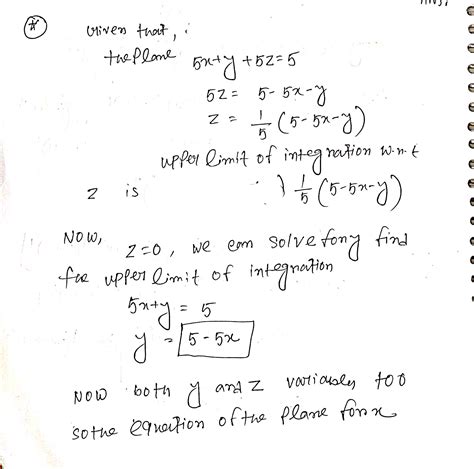 Given that,
the Plane 5x+y+5z=5
5z = 5-5x-y
z = 1/5 (5-5x-y)
upper limit of integration w.r.t
z is 1/5 (5-5x-y)
Now, z=0, we can solve for y find
for upper limit of integration
5x+y = 5
y = 5-5x
Now both y and z variables too
so the equation of the plane for x